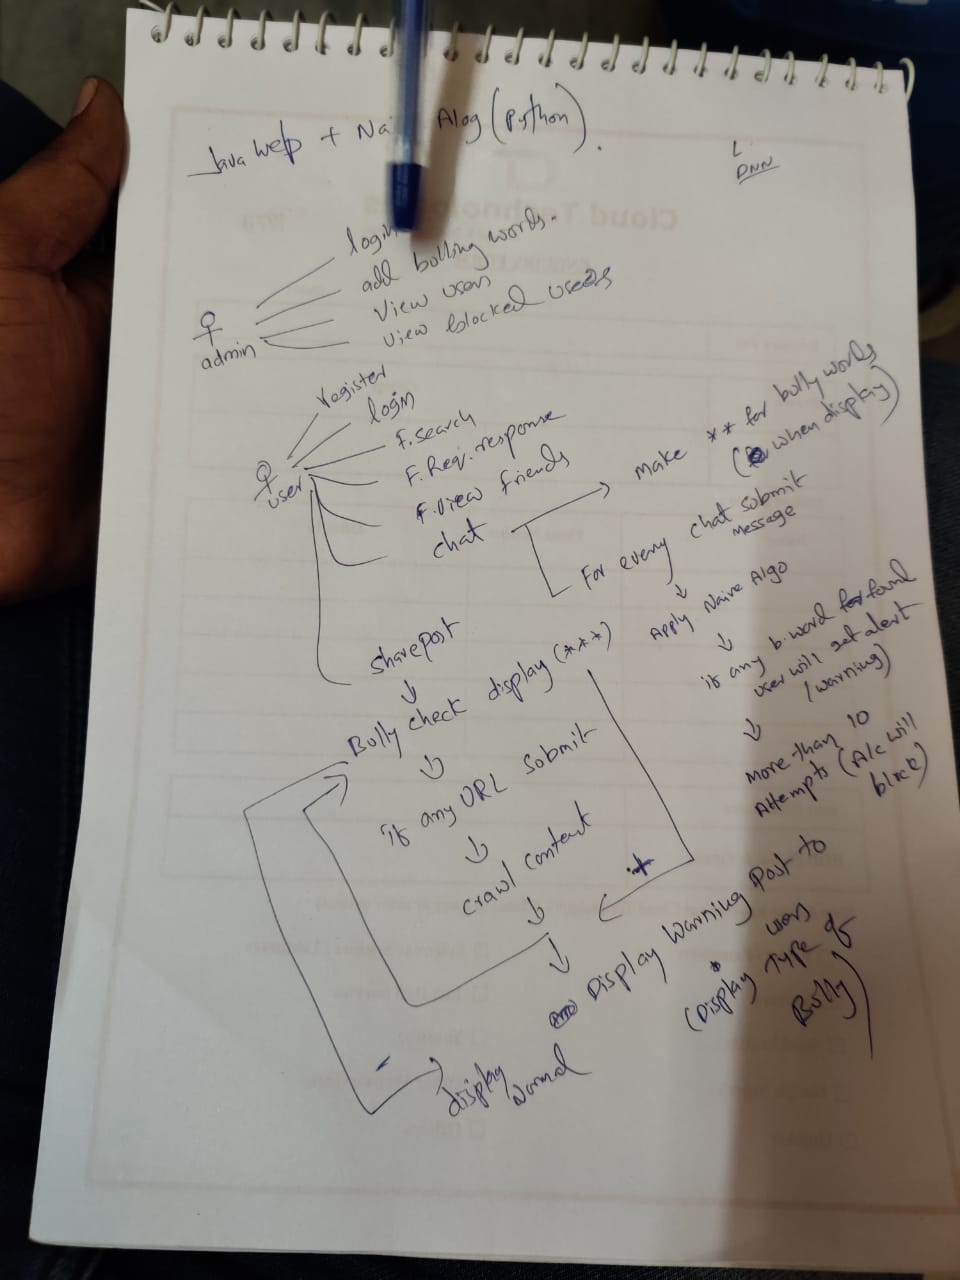 Java Web + Nai Alog (Python).
DNN
login
add bolling words.
View users
view blocked users
admin
register
login
F.search
F.Req.response
F.view friends
chat
user
make ** for bully words
(when display)
For every chat submit
message
↓
Apply Naive Algo
↓
if any b.word found
user will get alert
(warning)
↓
more than 10
Attempts (A/c will
block)
sharepost
↓
Bully check display (***)
↓
if any URL submit
↓
crawl content
↓
+
↓
Display Warning Post to
users
(Display Type of
Bully)
-
display
Normal
Cloud Technologies